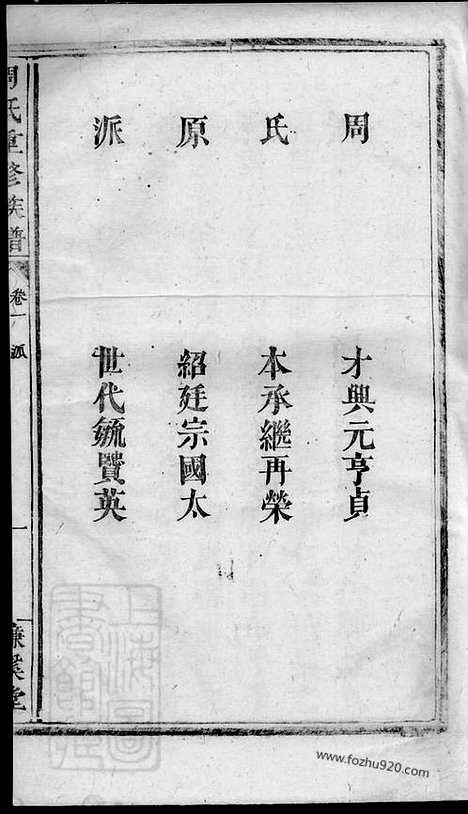 周 才興元亨貞
氏 本承繼再榮
原 紹廷宗國太
派 世代毓賢英
周氏重修族譜
卷一 派
一
濂溪堂
上海圖書館藏
www.fozhu920.com